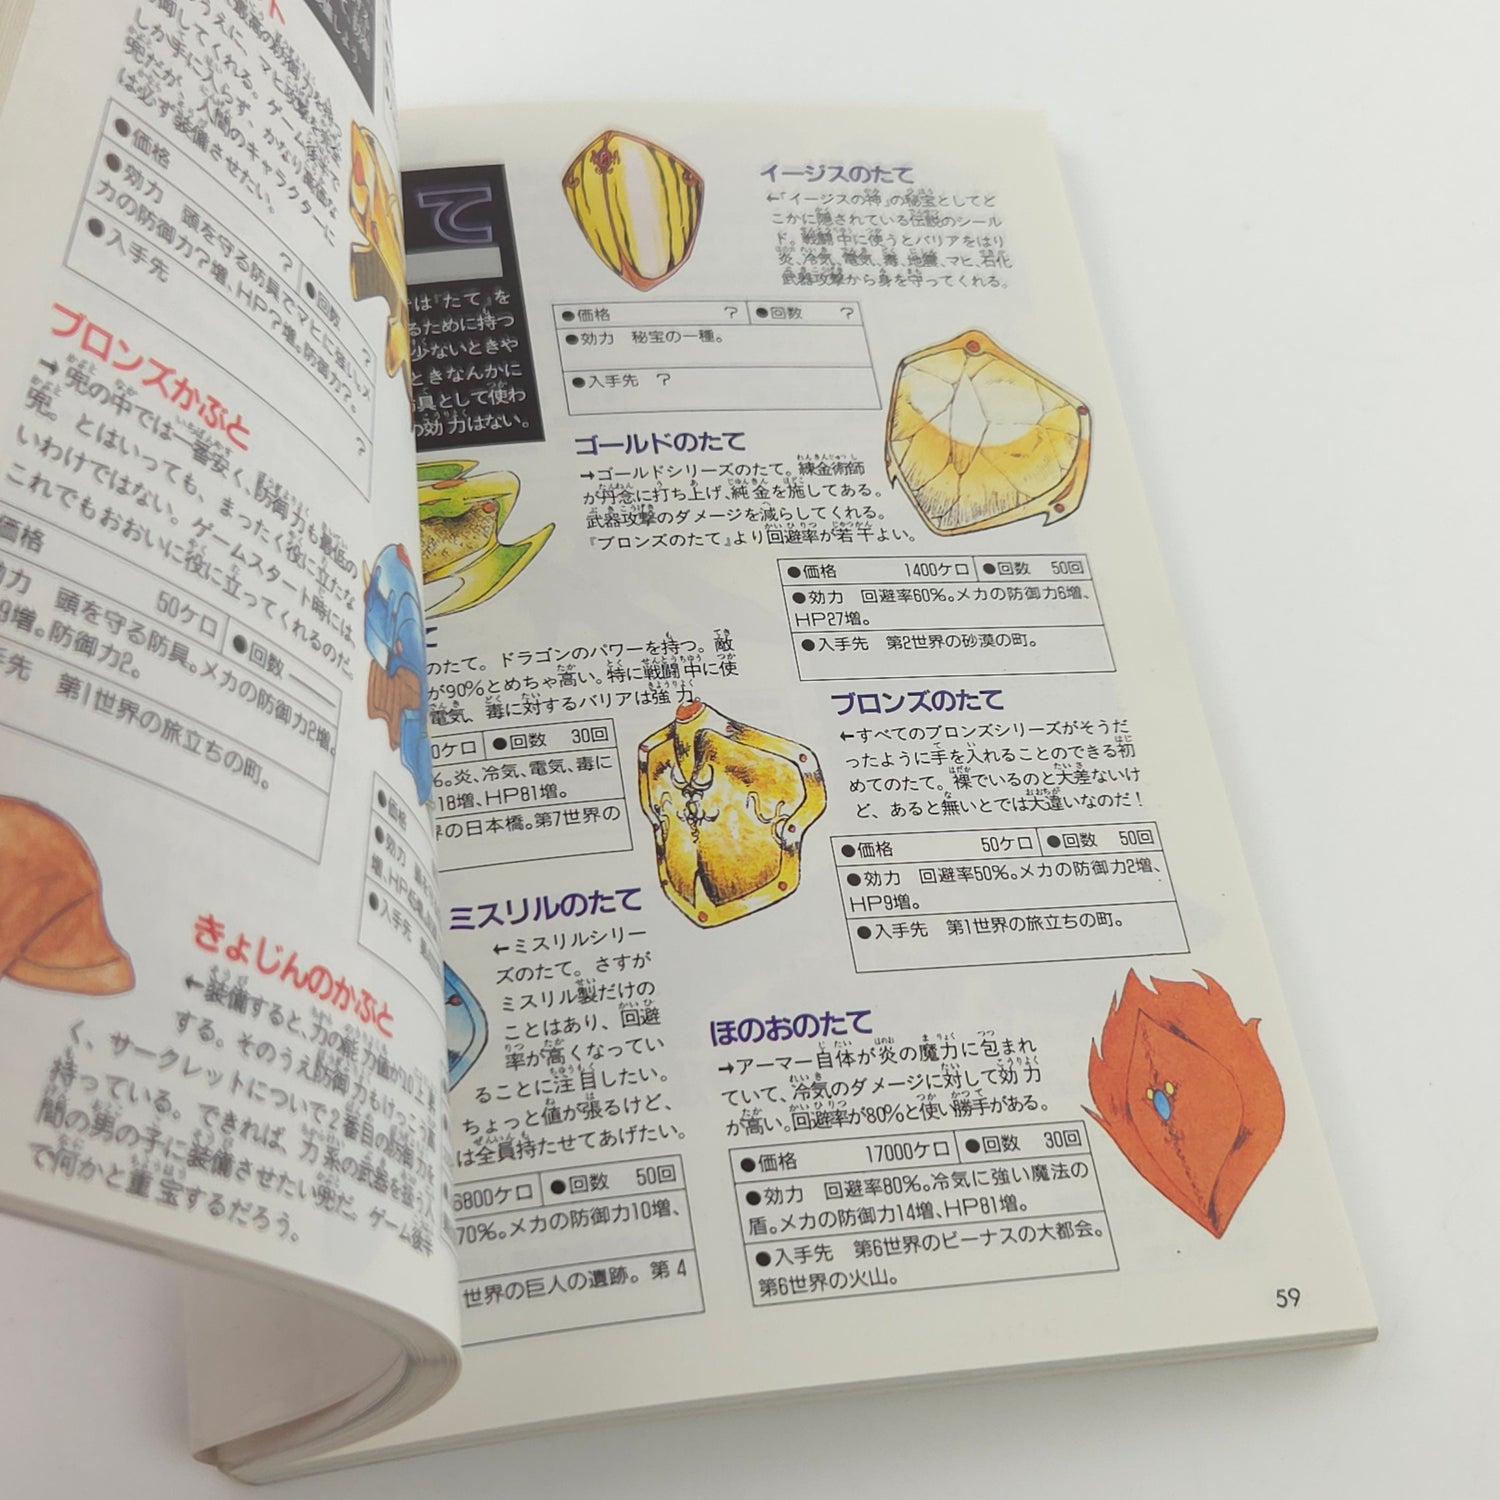 しか手に入らず、かなり貴重な
兜だが、人間のキャラクターに
は必ず装備させたい。
●価格 ?
●回数 ?
●効力 頭を守る防具でマヒに強い。メ
カの防御力?増、HP?増。防御力?。
●入手先 ?
ブロンズかぶと
→兜の中では一番安く、防御力も最低の
兜。とはいっても、まったく役に立たな
いわけではない。ゲームスタート時には、
これでもおおいに役に立ってくれるのだ。
価格 50ケロ
●回数
頭を守る防具。メカの防御力2増、
9増。防御力2。
第1世界の旅立ちの町。
●価格
●効力
●入手先
きょじんのかぶと
←装備すると、力の能力値が10上昇
する。そのうえ防御力もけっこう高
く、サークレットについで2番目の防御力を
持っている。できれば、力系の武器を扱う人
間の男の子に装備させたい兜だ。ゲーム後半
で何かと重宝するだろう。
て
は『たて』を
るために持つ
少ないときや
ときなんかに
具として使わ
の効力はない。
イージスのたて
←「イージスの神」の秘宝としてど
こかに隠されている伝説のシール
ド。戦闘中に使うとバリアをはり
炎、冷気、電気、毒、地震、マヒ、石化
武器攻撃から身を守ってくれる。
●価格 ?
●回数 ?
●効力 秘宝の一種。
●入手先 ?
ゴールドのたて
→ゴールドシリーズのたて。錬金術師
が丹念に打ち上げ、純金を施してある。
武器攻撃のダメージを減らしてくれる。
『ブロンズのたて』より回避率が若干よい。
●価格 1400ケロ
●回数 50回
●効力 回避率60%。メカの防御力6増、
HP27増。
●入手先 第2世界の砂漠の町。
て
のたて。ドラゴンのパワーを持つ。敵
が90%とめちゃ高い。特に戦闘中に使
電気、毒に対するバリアは強力。
0ケロ
●回数 30回
%。炎、冷気、電気、毒に
18増、HP81増。
の日本橋。第7世界の
ブロンズのたて
←すべてのブロンズシリーズがそうだ
ったように手を入れることのできる初
めてのたて。裸でいるのと大差ないけ
ど、あると無いとでは大違いなのだ!
●価格 50ケロ
●回数 50回
●効力 回避率50%。メカの防御力2増、
HP9増。
●入手先 第1世界の旅立ちの町。
ミスリルのたて
←ミスリルシリー
ズのたて。さすが
ミスリル製だけの
ことはあり、回避
率が高くなってい
ることに注目したい。
ちょっと値が張るけど、
は全員持たせてあげたい。
6800ケロ
●回数 50回
70%。メカの防御力10増、
世界の巨人の遺跡。第4
ほのおのたて
→アーマー自体が炎の魔力に包まれ
ていて、冷気のダメージに対して効力
が高い。回避率が80%と使い勝手がある。
●価格 17000ケロ
●回数 30回
●効力 回避率80%。冷気に強い魔法の
盾。メカの防御力14増、HP81増。
●入手先 第6世界のビーナスの大都会。
第6世界の火山。
59